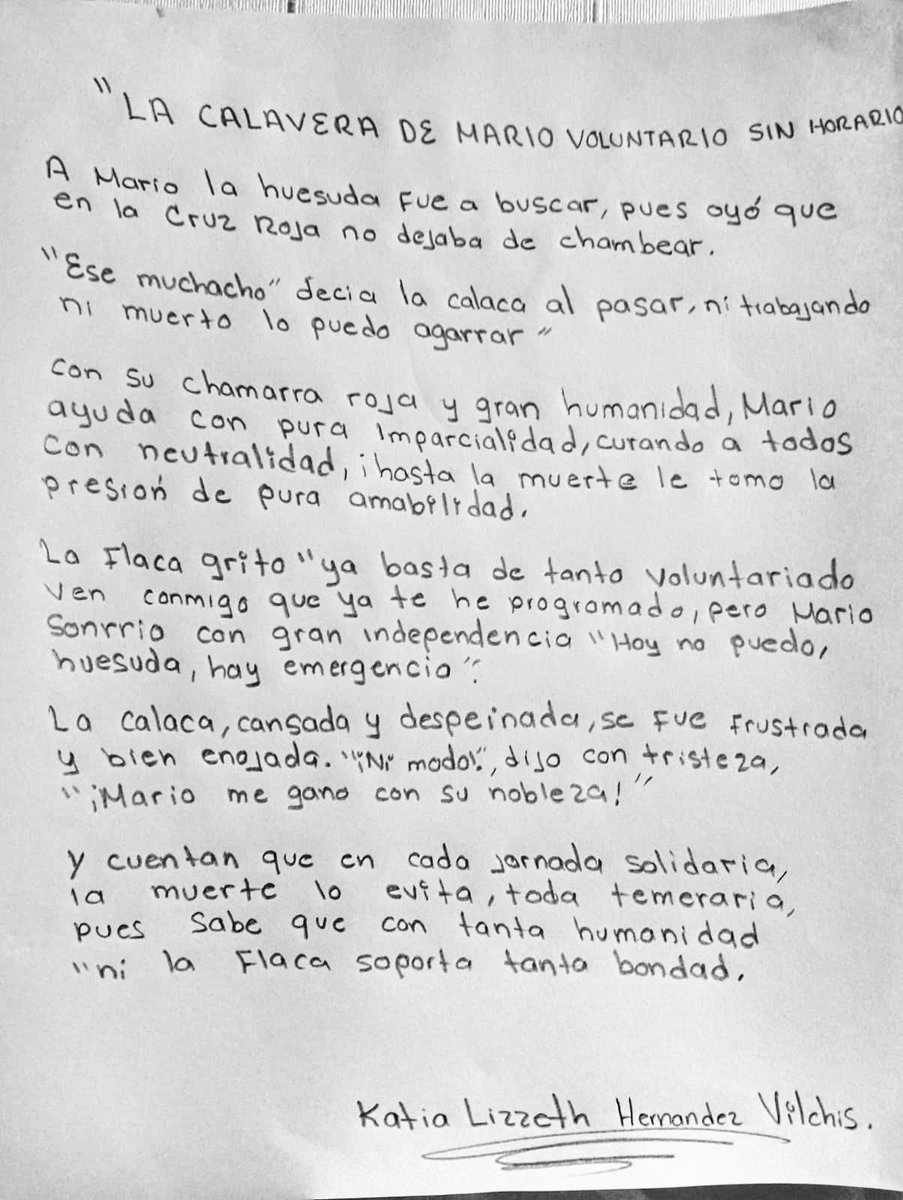 "LA CALAVERA DE MARIO VOLUNTARIO SIN HORARIO
A Mario la huesuda fue a buscar, pues oyó que
en la Cruz Roja no dejaba de chambear.
"Ese muchacho" decia la calaca al pasar, ni trabajando
ni muerto lo puedo agarrar"
Con su chamarra roja y gran humanidad, Mario
ayuda con pura imparcialidad, curando a todos
con neutralidad, ¡hasta la muerte le tomo la
presión de pura amabilidad.
La Flaca grito "ya basta de tanto voluntariado
ven conmigo que ya te he programado, pero Mario
Sonrrio con gran independencia "Hoy no puedo,
huesuda, hay emergencia".
La calaca, cansada y despeinada, se fue frustrada
y bien enojada. "¡Ni modo!", dijo con tristeza,
"¡Mario me gano con su nobleza!"
Y cuentan que en cada jornada solidaria,
la muerte lo evita, toda temeraria,
pues sabe que con tanta humanidad
"ni la Flaca soporta tanta bondad.
Katia Lizzeth Hernandez Vilchis.